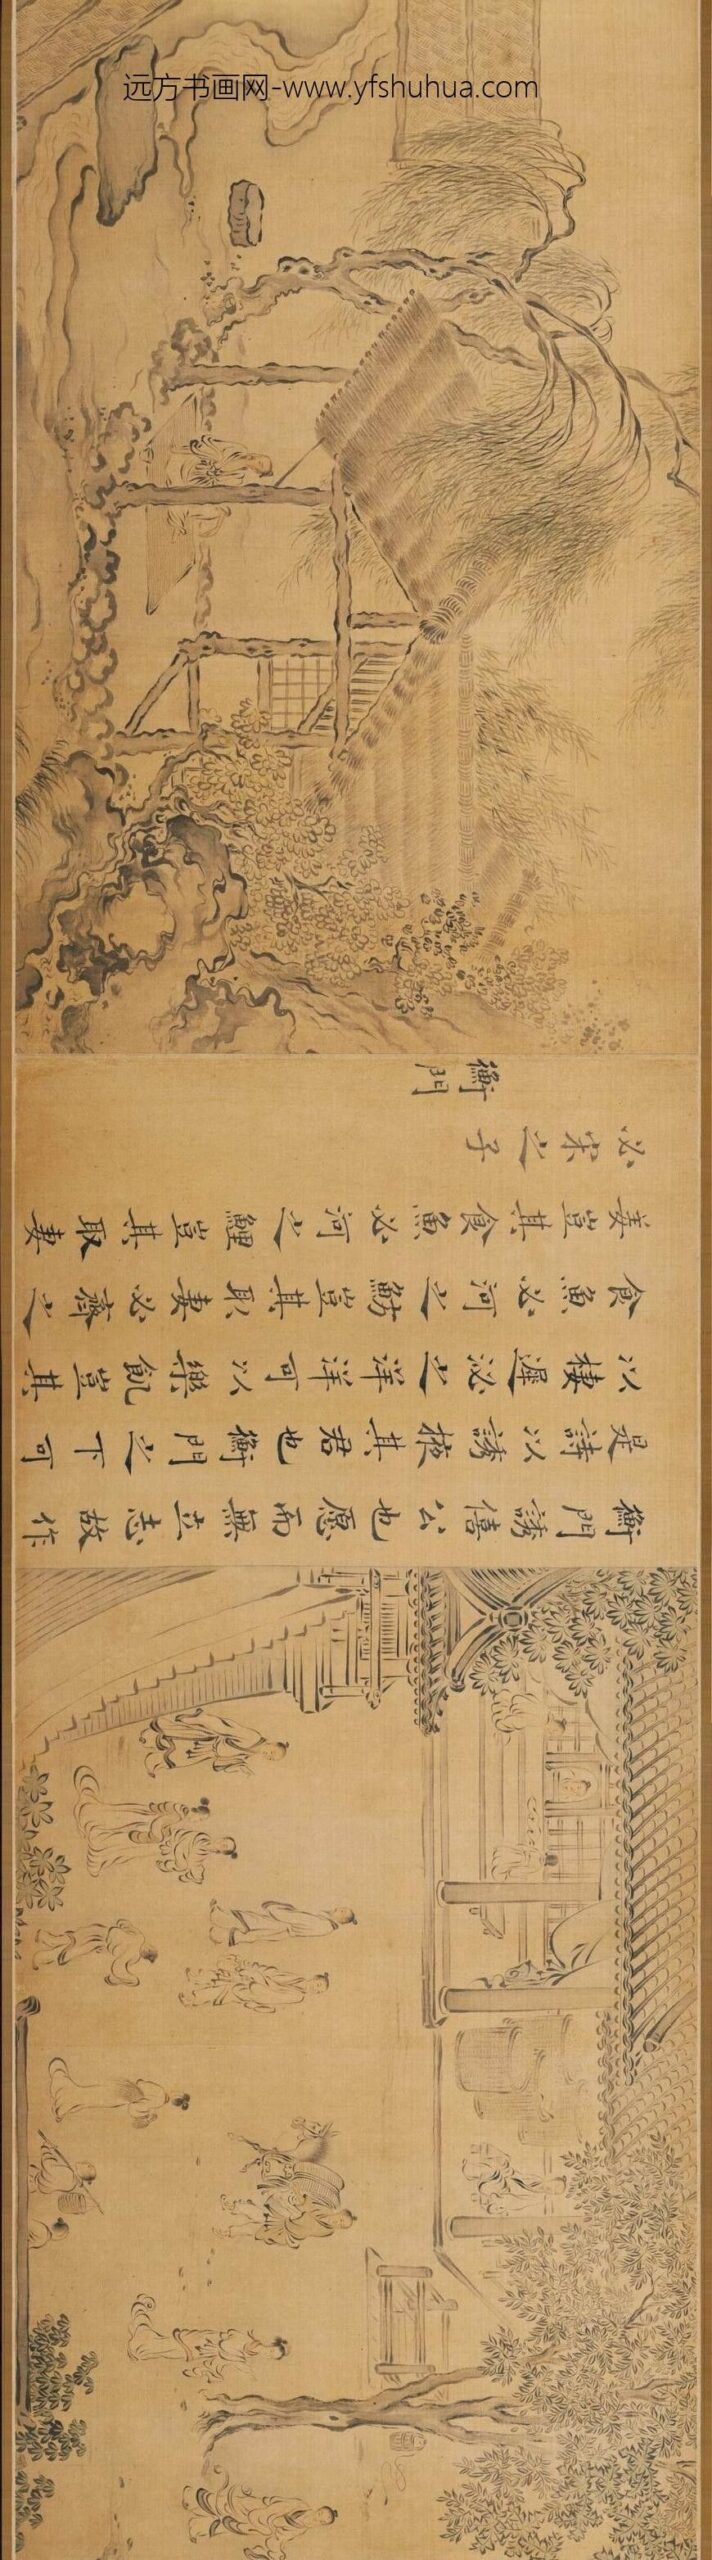 远方书画网-www.yfshuhua.com
衡門誘僖公也愿而無立志故作
是詩以誘掖其君也衡門之下可
以棲遲泌之洋洋可以樂飢豈其
食魚必河之魴豈其取妻必齊之
姜豈其食魚必河之鯉豈其取妻
必宋之子
衡門